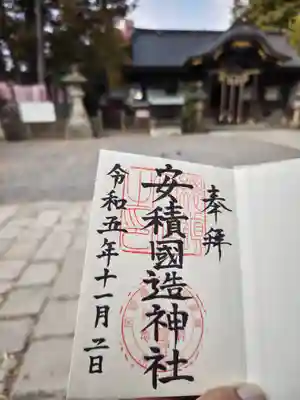 奉拝
安積國造神社
令和五年十一月二日